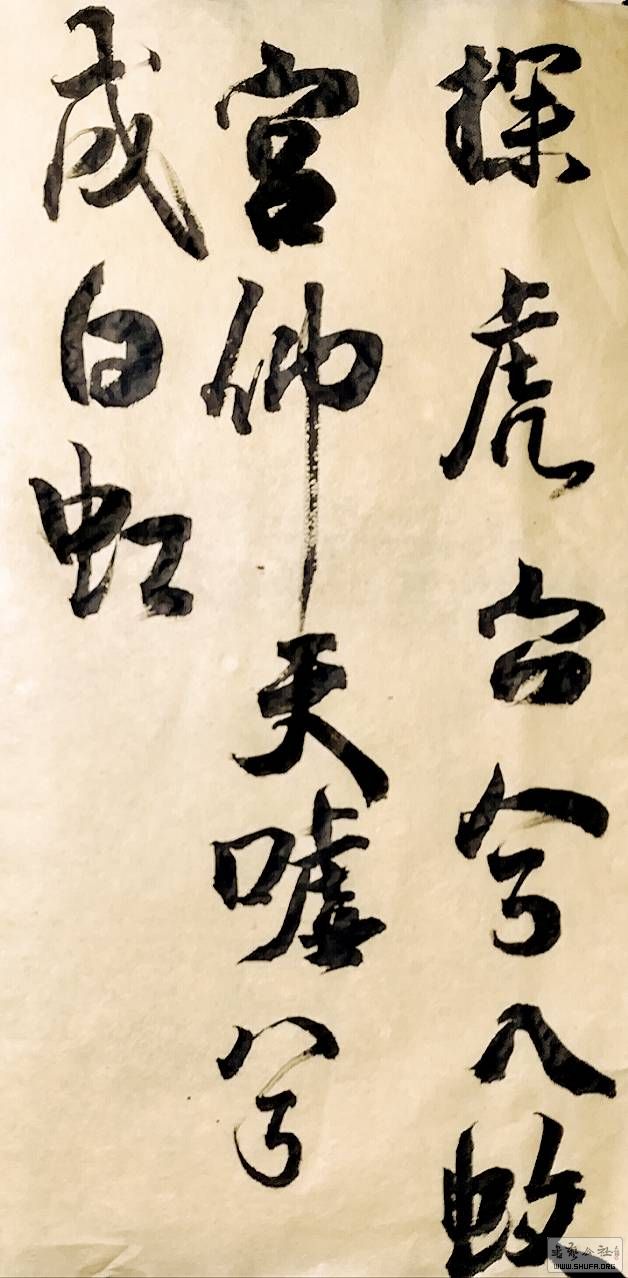 探虎兮入蛟
宫仰天嘘兮
成白虹
书艺公社
WWW.SHUFA.ORG